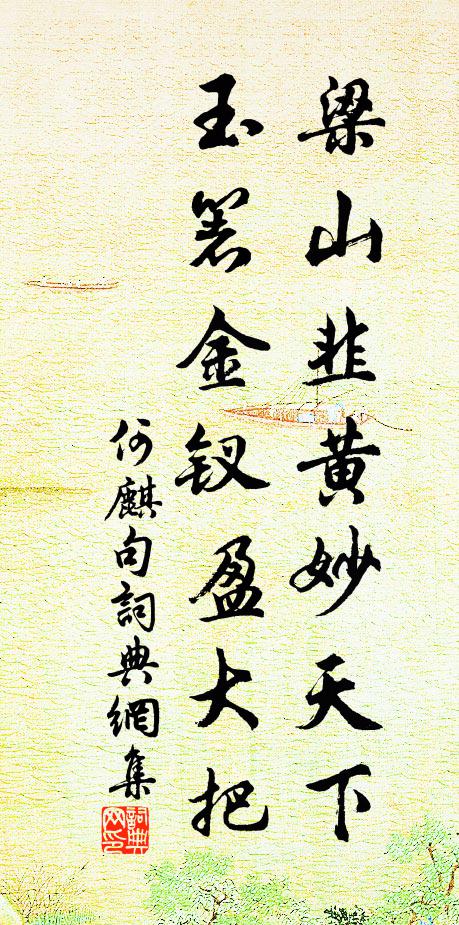 梁山韭黄妙天下
玉箸金钗盈大把
何麒句詞典網集
詞典网印